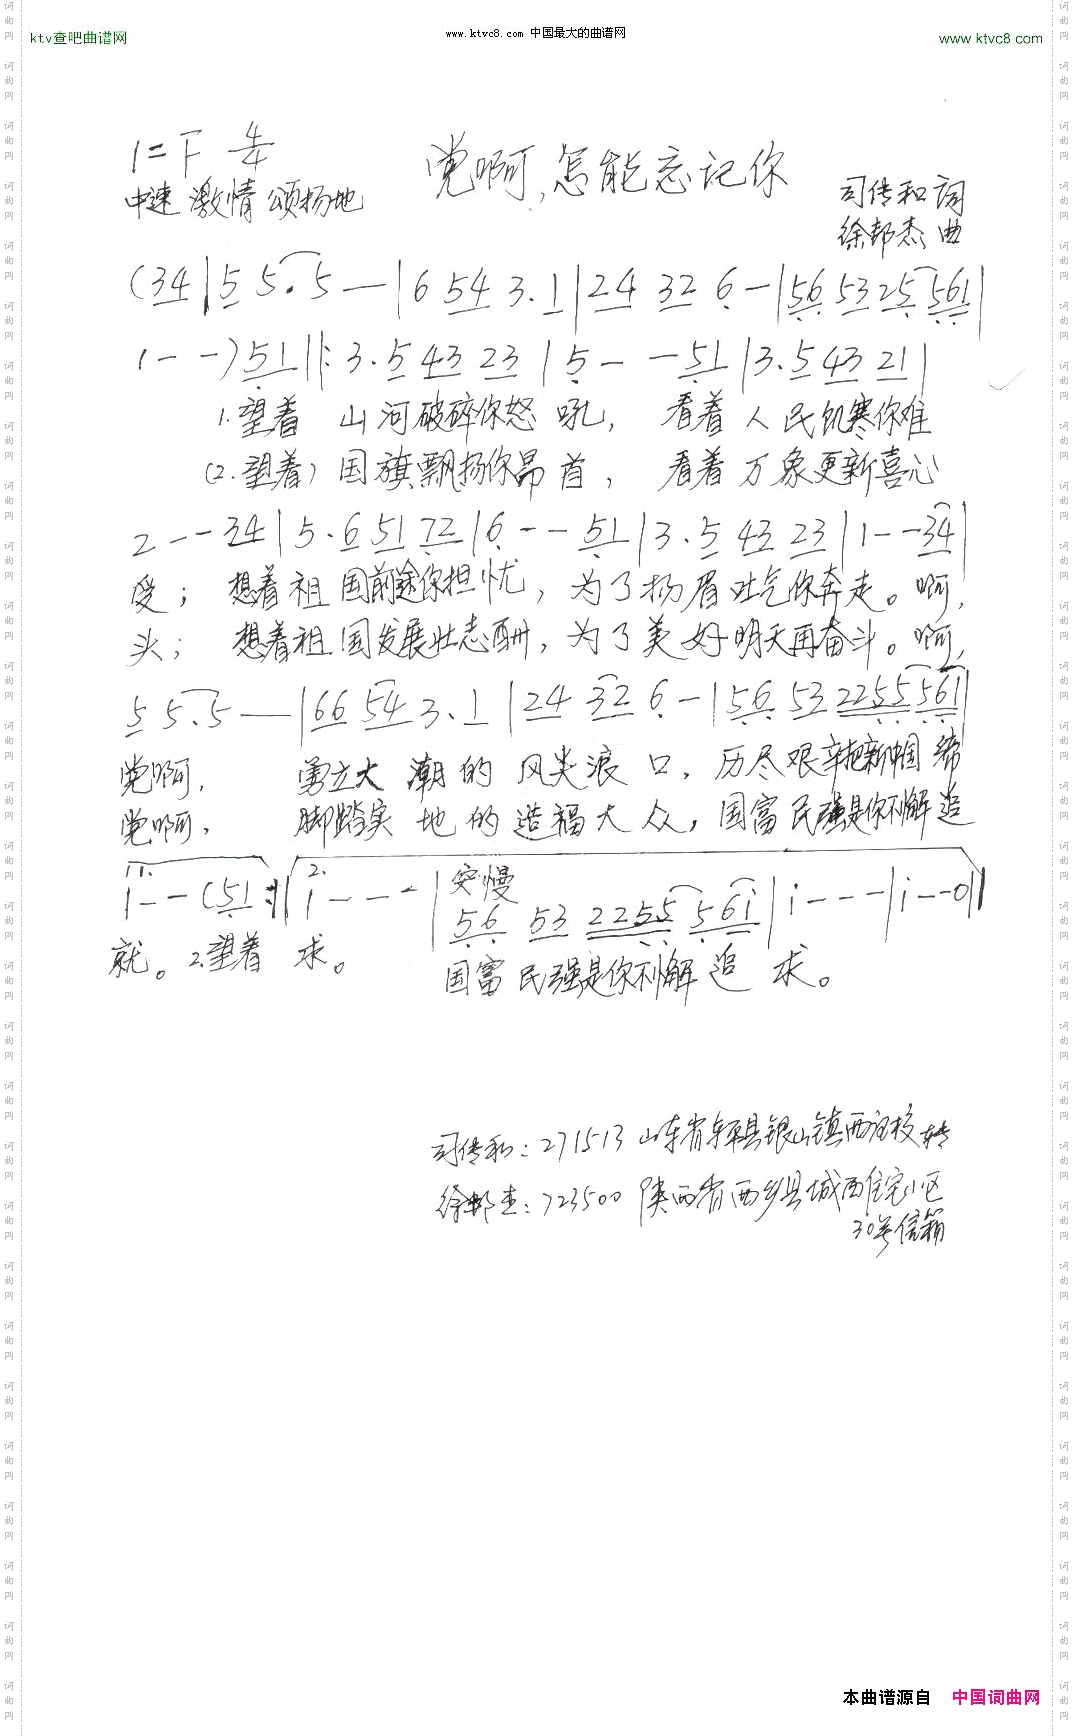 ktv查吧曲谱网
www.ktvc8.com 中国最大的曲谱网
www ktvc8 com
1=F 4/4
党啊,怎能忘记你
中速 激情 颂扬地
司传和 词
徐邦杰 曲
(34|5 5.5 —|6 54 3.1|24 32 6 -|56 53 25 561|
1 - -)51||:3.5 43 23|5 - - 51|3.5 43 21|
1.望着 山河破碎你怒吼, 看着人民饥寒你难
(2.望着)国旗飘扬你昂首, 看着万象更新喜心
2 - - 34|5.6 51 72|6 - - 51|3.5 43 23|1 - - 34|
受; 想着祖国前途你担忧, 为了扬眉吐气你奔走。啊,
头; 想着祖国发展壮志酬, 为了美好明天再奋斗。啊,
5 5.5 —|66 54 3.1|24 32 6 -|56 53 2255 561|
党啊, 勇立大潮的风尖浪口, 历尽艰辛把新中国缔
党啊, 脚踏实地的造福大众, 国富民强是你不懈追
1.
2.
突慢
1 - - (51:||1 - - -|56 53 2255 56i|i - - -|i - - 0||
就。2.望着 求。 国富民强是你不懈追求。
司传和:271513 山东省东平县银山镇西 校转
徐邦杰:723500 陕西省西乡县城西住宅小区
30号信箱
本曲谱源自 中国词曲网